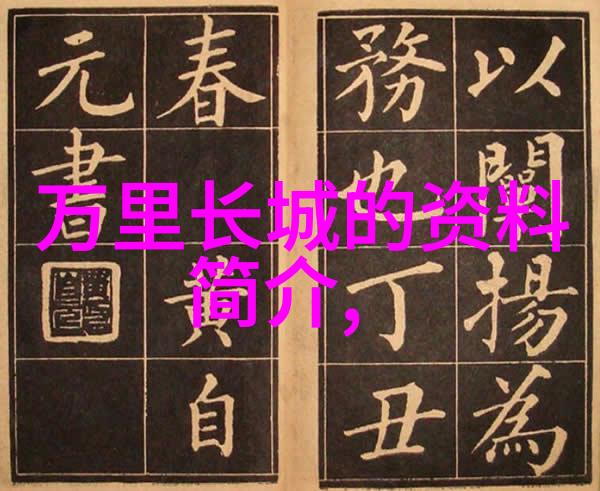 万里长城的资料
简介,
以闡揚為
務也丁丑
春 黄自
元書